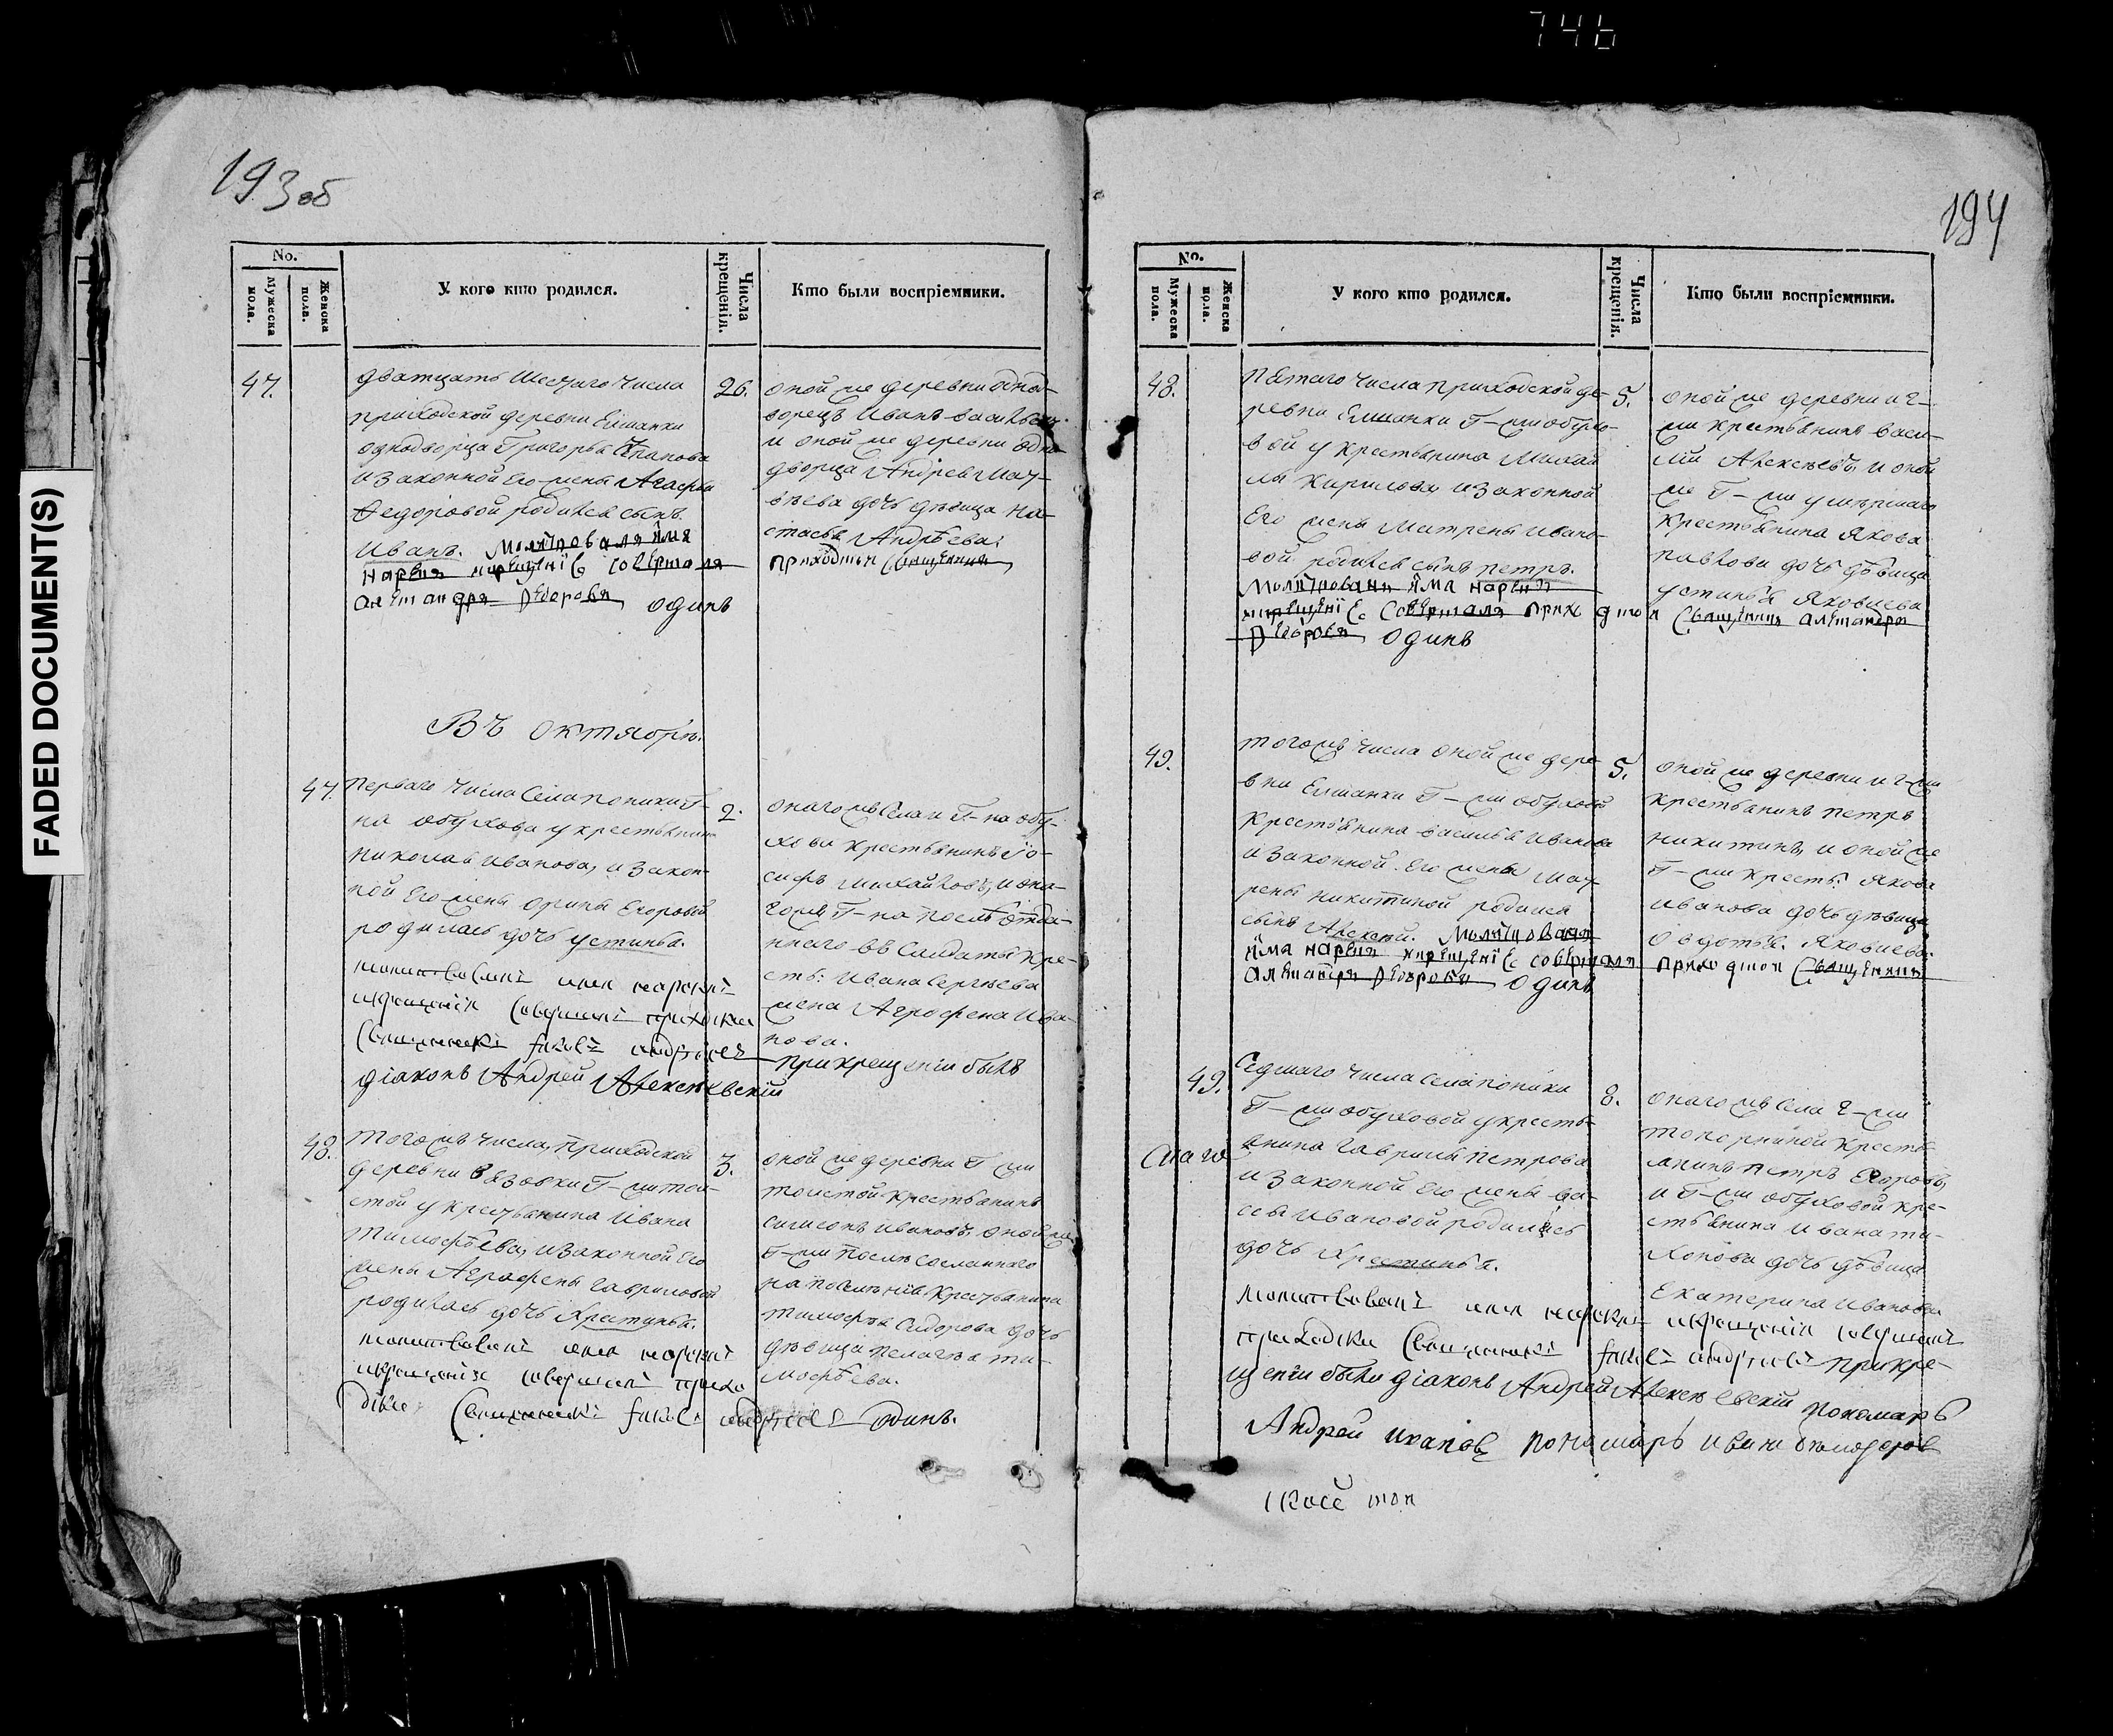 746
FADED DOCUMENT(S)
193 об
No.
Мужеска пола.
Женска пола.
У кого кто родился.
Числа крещенія.
Кто были воспріемники.
47.
дватцать шестаго числа
приходской деревни Елшанки
однодворца Григорья
и законной его жены Агафьи
Федоровой родился сынъ
Иванъ. молитвовалъ имя
нарекъ и крещеніе совершалъ
одинъ
26.
оной же деревни одно-
ворецъ Иванъ
и оной же деревни одно
дворца Андрея Мат-
вѣева дочь дѣвица На-
стасья Андрѣева.
приходской священникъ
Въ октябрѣ.
47.
Перваго числа села Поники Г-
на Обухова у крестьянина
Николая Иванова, и закон-
ной его жены Орины Егоровой
родилась дочь Устинья.
молитвовалъ имя нарекъ
и крещеніе совершилъ приходской
священникъ
діаконъ Андрей Алексѣевскій
2.
онагожъ села и Г-на Обу-
хова крестьянинъ Іо-
сифъ Михайловъ, и она-
гожъ Г-на послѣ отда-
ннаго въ солдаты кре-
сть: Ивана Сергѣева
жена Агрофена Ива-
нова.
при крещеніи былъ
48.
Тогожъ числа, приходской
деревни Вязовки Г-жи Тол-
стой у крестьянина Ивана
Тимофѣева, и законной его
жены Агрофены Гавриловой
родилась дочь Хрестинья.
молитвовалъ имя нарекъ
и крещеніе совершилъ прихо
дской священникъ одинъ.
3.
оной же деревни Г-жи
Толстой крестьянинъ
Ивановъ, оной же
Г-жи послѣ сосланнаго
на поселеніе крестьянина
Тимофѣя Сидорова дочь
дѣвица Пелагѣя Ти-
мофѣева.
194
No.
Мужеска пола.
Женска пола.
У кого кто родился.
Числа крещенія.
Кто были воспріемники.
48.
Пятаго числа приходской де-
ревни Елшанки Г-жи Обухо-
вой у крестьянина Михай
лы Кирилова, и законной
его жены Матрены Ивано-
вой родился сынъ Петръ.
молитвовалъ имя нарекъ
и крещеніе совершалъ приходской священникъ
одинъ
5.
оной же деревни и Г-
жи крестьянинъ Васи-
лій Алексѣевъ, и оной
же Г-жи умершаго
крестьянина Якова
Павлова дочь дѣвица
Устинья Яковлева
49.
тогожъ числа оной же дере-
вни Елшанки Г-жи Обуховой
крестьянина Василья Иванова
и законной его жены Мат-
рены Никитиной родился
сынъ Алексѣй. молитвовалъ
имя нарекъ и крещеніе совершалъ приходской священникъ
одинъ
5.
оной же деревни и Г-жи
крестьянинъ Петръ
Никитинъ, и оной же
Г-жи кресть: Якова
Иванова дочь дѣвица
Овдотья Яковлева.
49.
Седмаго числа села Поники
Г-жи Обуховой у кресть-
янина Гаврилы Петрова
и законной его жены Ва-
сы Ивановой родилась
дочь Хрестинья.
молитвовалъ имя нарекъ и крещеніе совершилъ
приходской священникъ при кре-
щеніи были діаконъ Андрей Алексѣевскій пономарь
Андрей Ивановъ пономарь
8.
онагожъ села Г-жи
крестья-
нинъ Петръ Егоровъ,
и Г-жи Обуховой кре-
стьянина Ивана Ти-
хонова дочь дѣвица
Екатерина Иванова